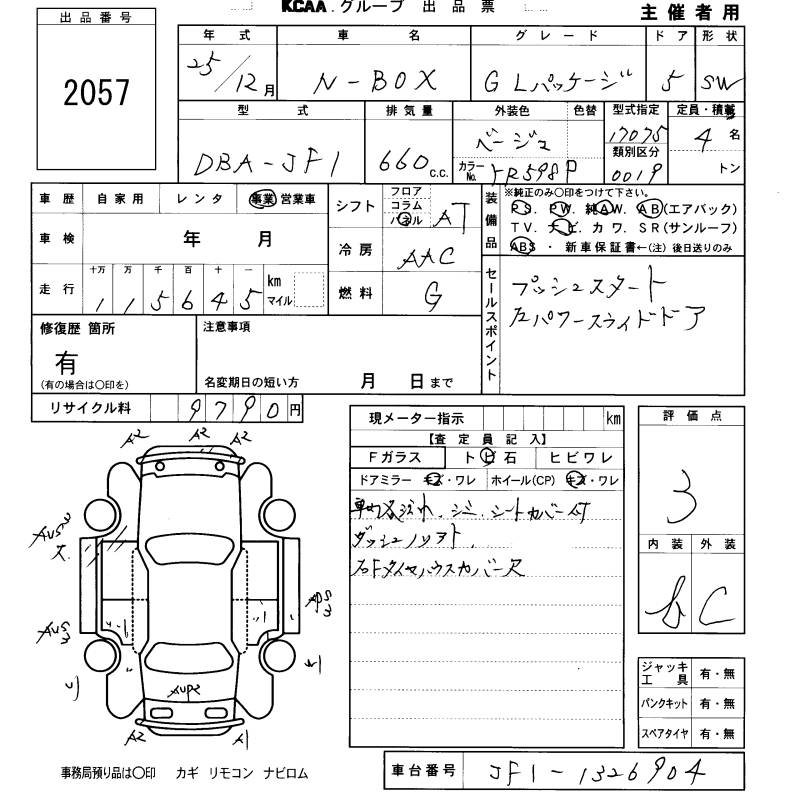 KCAA. グループ 出品票
主催者用
出品番号
2057
年式 車名 グレード ドア 形状
25/12月 N-BOX G Lパッケージ 5 SW
型式 排気量 外装色 色替 型式指定 定員・積載
DBA-JF1 660c.c. ベージュ 17075 4名
カラーNo. YR598P 類別区分 0019 トン
車歴 自家用 レンタ 事業 営業車
シフト フロア コラム パネル AT
装備品 ※純正のみ〇印をつけて下さい。
PS. PW. 純AW. AB(エアバック)
TV. ナビ. カワ. SR(サンルーフ)
ABS ・ 新車保証書←(注) 後日送りのみ
車検 年 月
冷房 AAC
走行 十万 万 千 百 十 一
115645 km マイル
燃料 G
セールスポイント
プッシュスタート
左パワースライドドア
修復歴 箇所
有
(有の場合は〇印を)
注意事項
名変期日の短い方 月 日まで
リサイクル料 9790円
現メーター指示 km
【査定員記入】
Fガラス トビ石 ヒビワレ
ドアミラー キズ・ワレ ホイール(CP) キズ・ワレ
シミ. シートカバー付
右Fタイヤハウスカバー欠
評価点
3
内装 外装
b C
A2 A2 A2
AUS3
AUS3
A2 A1
AUP2
ジャッキ 工具 有・無
パンクキット 有・無
スペアタイヤ 有・無
事務局預り品は〇印 カギ リモコン ナビロム
車台番号 JF1-1326904